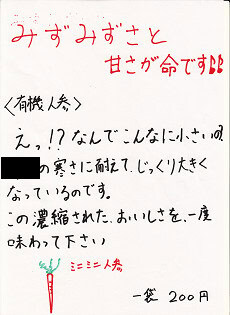 みずみずさと
甘さが命です!!
〈有機人参〉
えっ!?なんでこんなに小さいの。
の寒さに耐えて、じっくり大きく
なっているのです。
この濃縮された、おいしさを、一度
味わって下さい
ミニミニ人参
一袋 200円